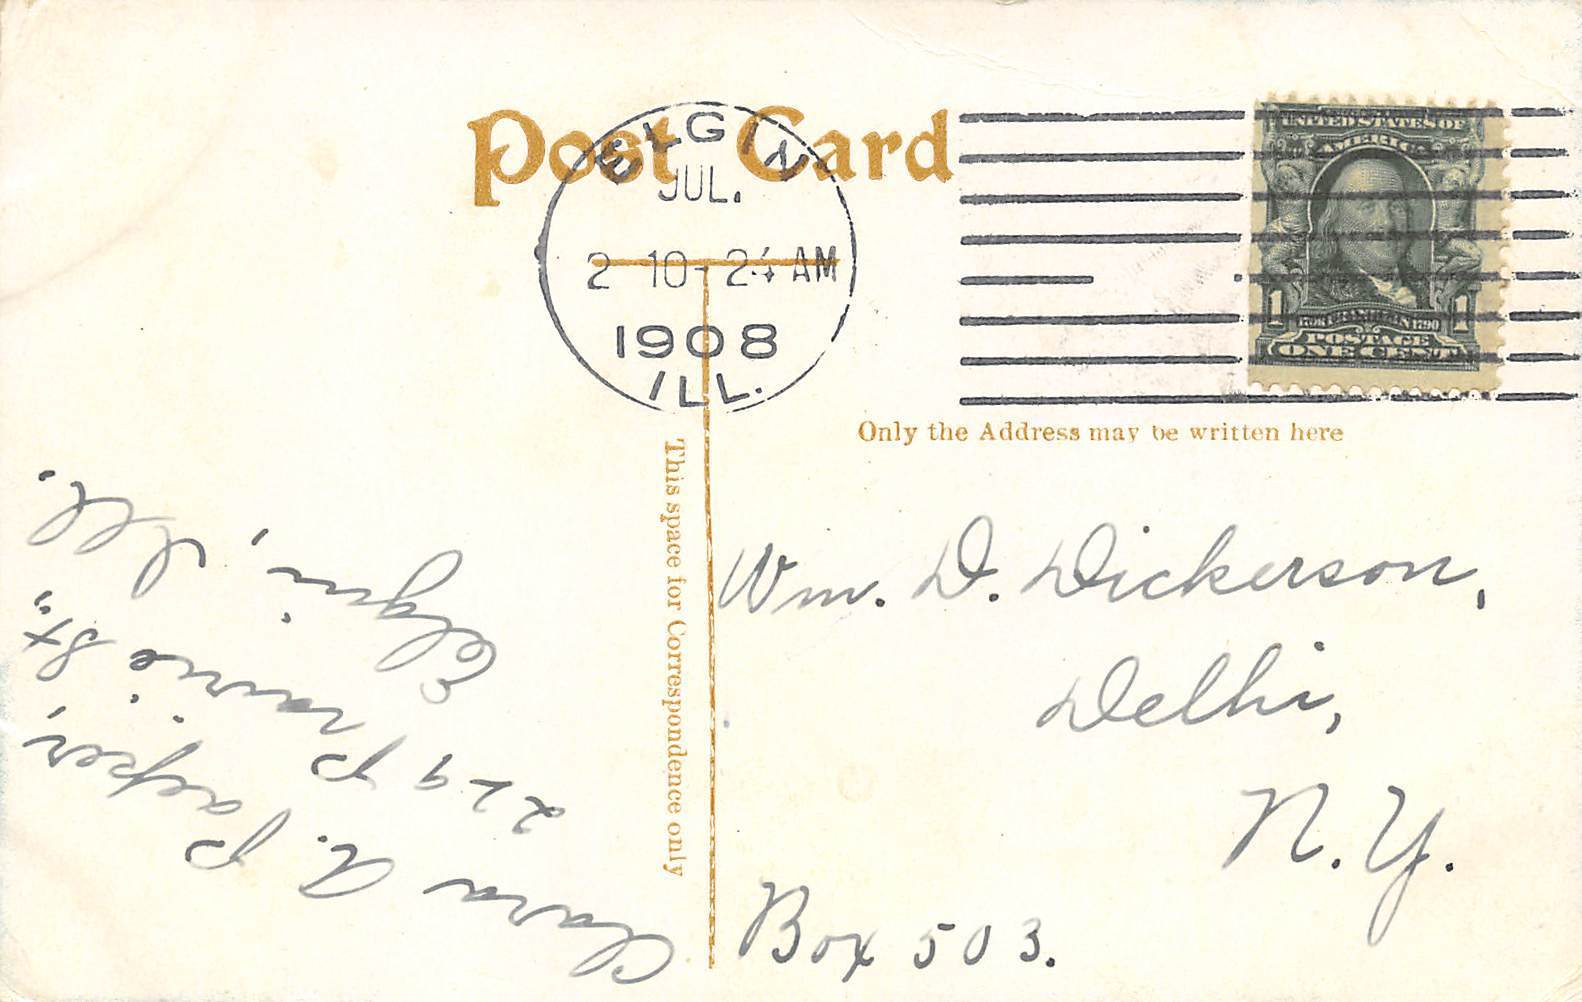 Post Card
ELGIN
JUL.
2 10- 24 AM
1908
ILL.
UNITED STATES OF
AMERICA
1 1
POSTAGE
ONE CENT
Only the Address may be written here
This space for Correspondence only
Wm. D. Dickerson,
Delhi,
N. Y.
Box 503.
Clara A.
219 Prairie St.,
Elgin, Ill.